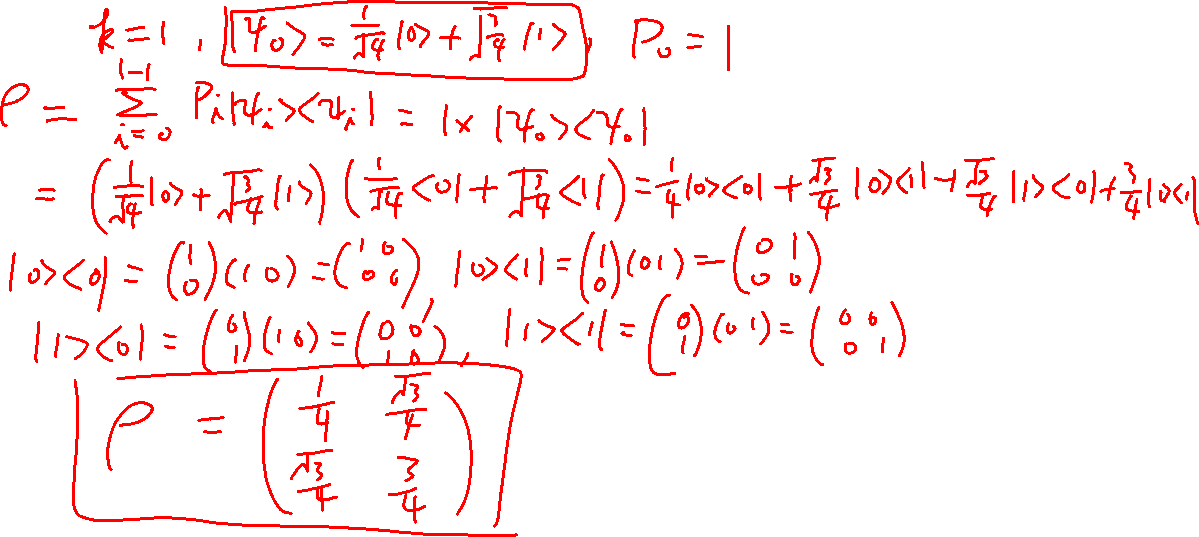 k=1, |ψ₀> = 1/√4 |0> + √(3/4) |1>, P₀ = 1
ρ = Σ_{i=0}^{1-1} Pᵢ|ψᵢ><ψᵢ| = 1× |ψ₀><ψ₀|
= (1/√4 |0> + √(3/4) |1>) (1/√4 <0| + √(3/4) <1|) = 1/4 |0><0| + √3/4 |0><1| + √3/4 |1><0| + 3/4 |0><1|
|0><0| = (1; 0)(1 0) = (1 0; 0 0), |0><1| = (1; 0)(0 1) = (0 1; 0 0)
|1><0| = (0; 1)(1 0) = (0 0; 1 0), |1><1| = (0; 1)(0 1) = (0 0; 0 1)
ρ = (1/4 √3/4; √3/4 3/4)